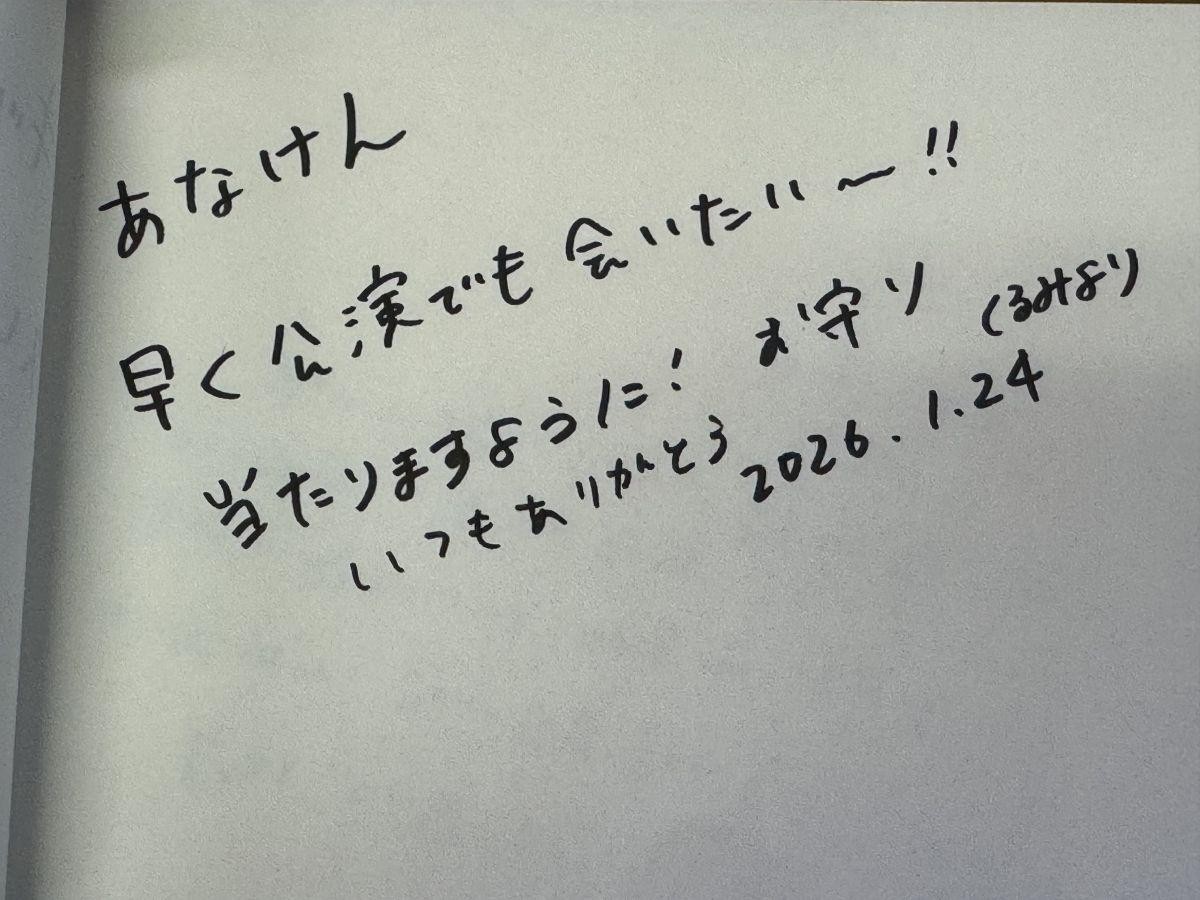 あなけん
早く公演でも会いたいー!!
当たりますように! お守り (るみより
いつもありがとう 2026.1.24